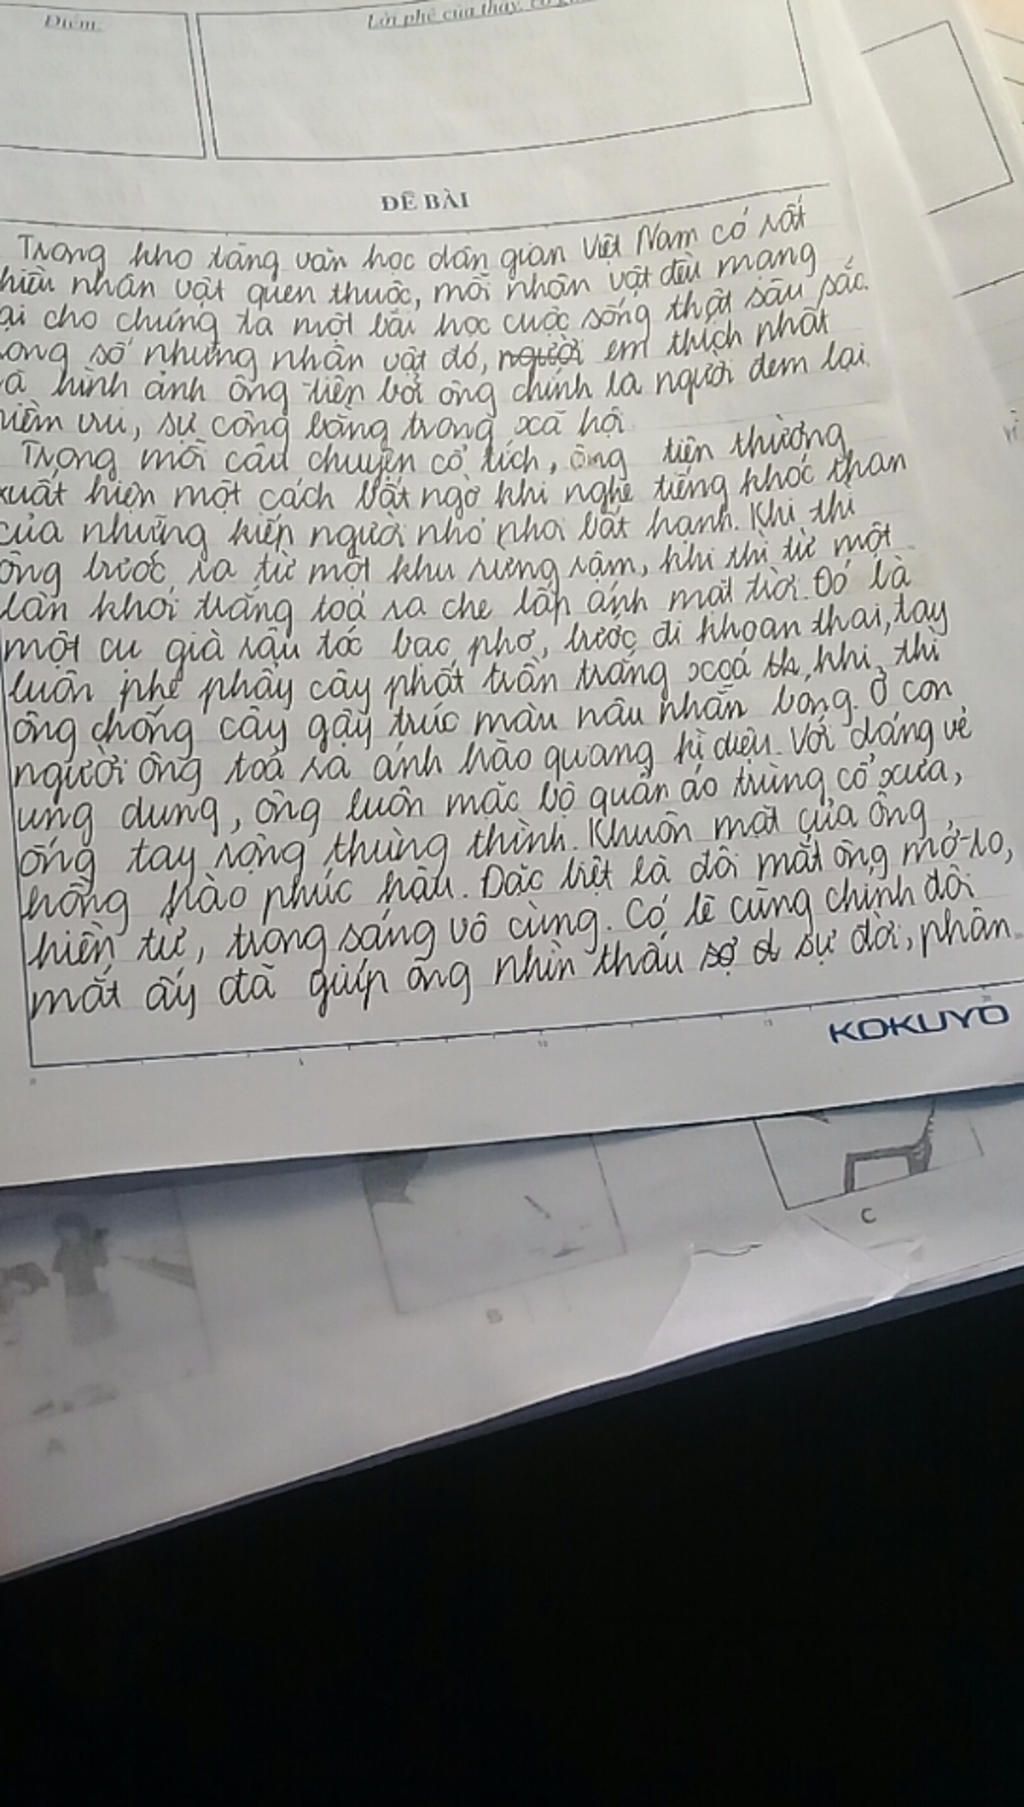 Điểm:
Lời phê của thầy, cô
ĐỀ BÀI
Trong kho tàng văn học dân gian Việt Nam có rất
hiều nhân vật quen thuộc, mỗi nhân vật đều mang
ại cho chúng ta một bài học cuộc sống thật sâu sắc.
ong số những nhân vật đó, người em thích nhất
à hình ảnh ông tiên bởi ông chính là người đem lại
iềm vui, sự công bằng trong xã hội
Trong mỗi câu chuyện cổ tích, ông tiên thường
xuất hiện một cách bất ngờ khi nghe tiếng khóc than
của những kiếp người nhỏ nhoi bất hạnh. Khi thì
ông bước ra từ một khu rừng rậm, khi thì từ một
làn khói trắng toả ra che lấp ánh mặt trời. Đó là
một cụ già râu tóc bạc phơ, bước đi khoan thai, tay
luôn phe phẩy cây phất trần trắng xoá th, khi thì
ông chống cây gậy trúc màu nâu nhẵn bóng. Ở con
người ông toả ra ánh hào quang kì diệu. Với dáng vẻ
ung dung, ông luôn mặc bộ quần áo trùng cổ xưa,
ống tay rộng thùng thình. Khuôn mặt của ông
hồng hào phúc hậu. Đặc biệt là đôi mắt ông mở to,
hiền từ, trong sáng vô cùng. Có lẽ cũng chính đôi
mắt ấy đã giúp ông nhìn thấu sự đời, phân
KOKUYO
A
B
C